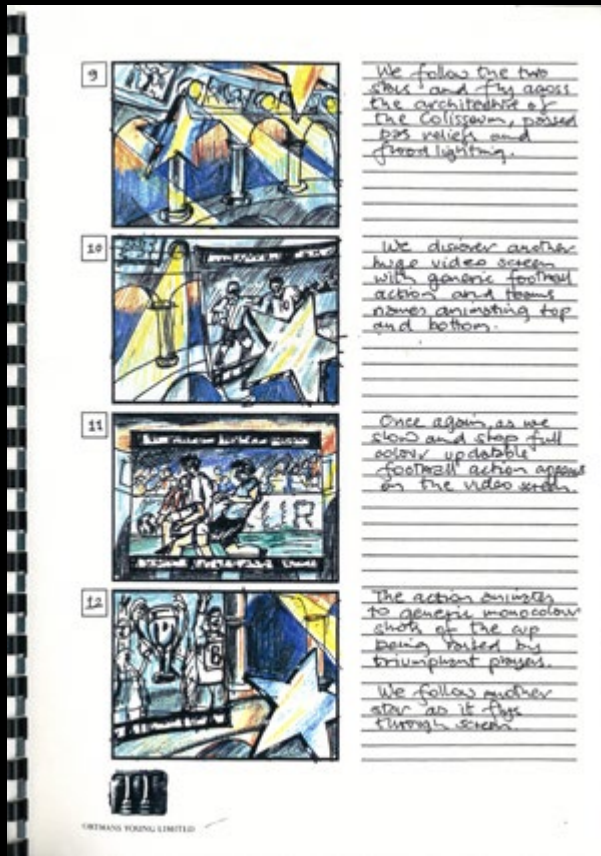 9
We follow the two
stars and fly agoss
the architecture of
the Colisseum, passed
bas reliefs and
flood lighting.
10
We discover another
huge video screen
with generic football
action and teams
names animating top
and bottom.
11
Once again, as we
slow and stop full
colour updatable
football action appears
on the video screen.
12
The action animates
to generic monocolour
shots of the cup
being raised by
triumphant players.
We follow another
star as it flys
through screen.
ORTMANS YOUNG LIMITED